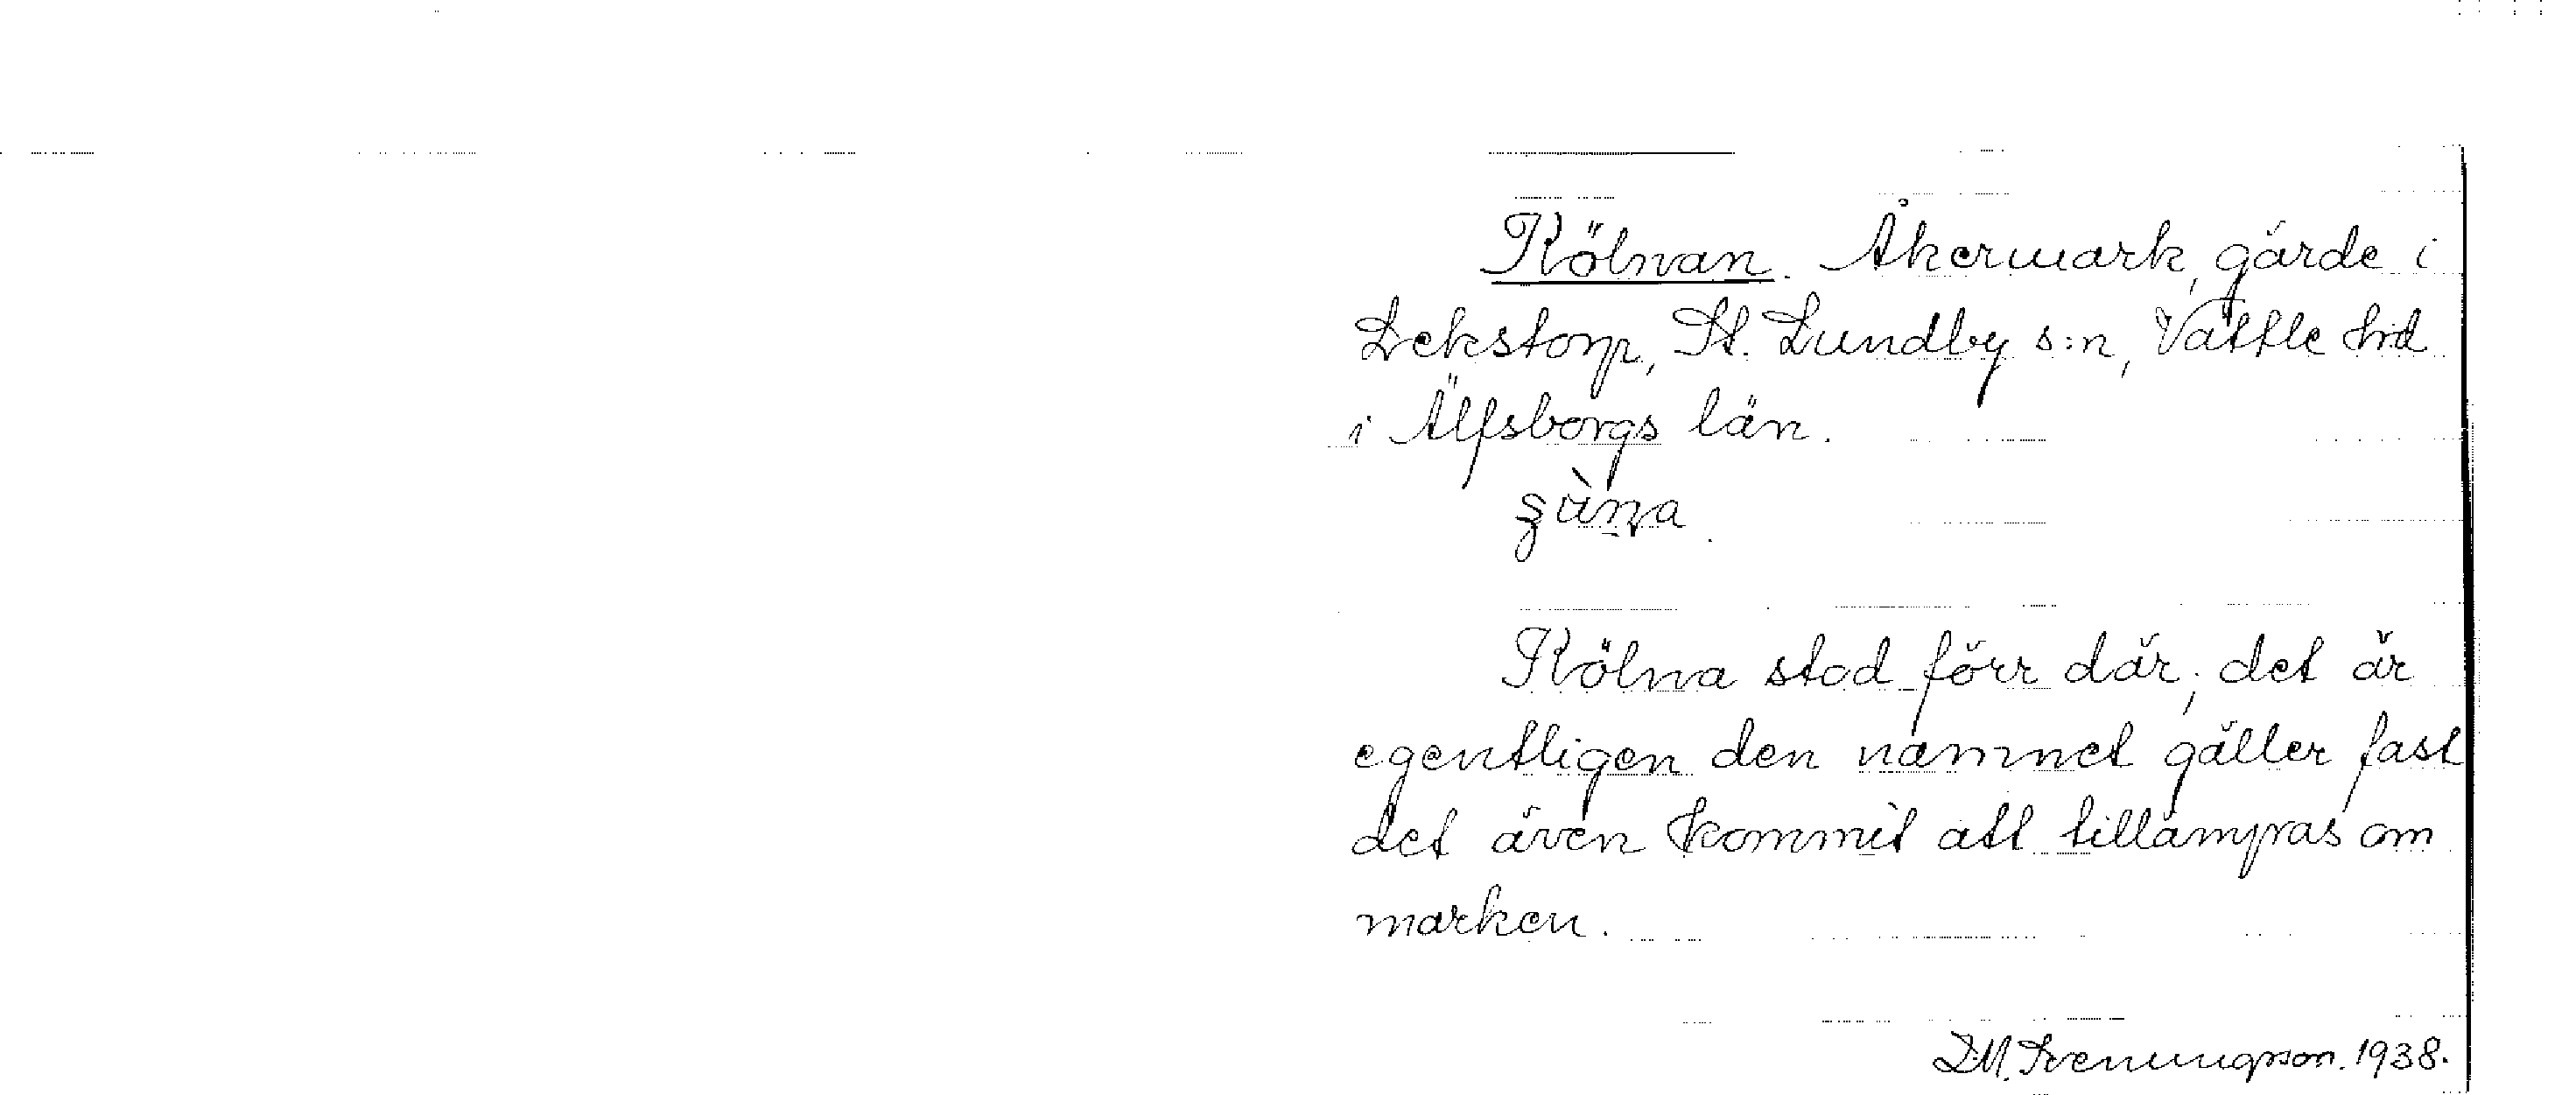 Kölnan. Åkermark, gärde i
Lekstorp, St. Lundby s:n, Vättle hd
i Älfsborgs län.
Kölna stod förr där; det är
egentligen den namnet gäller fast
det även kommit att tillämpas om
marken.
D.M. Sveningsson. 1938.